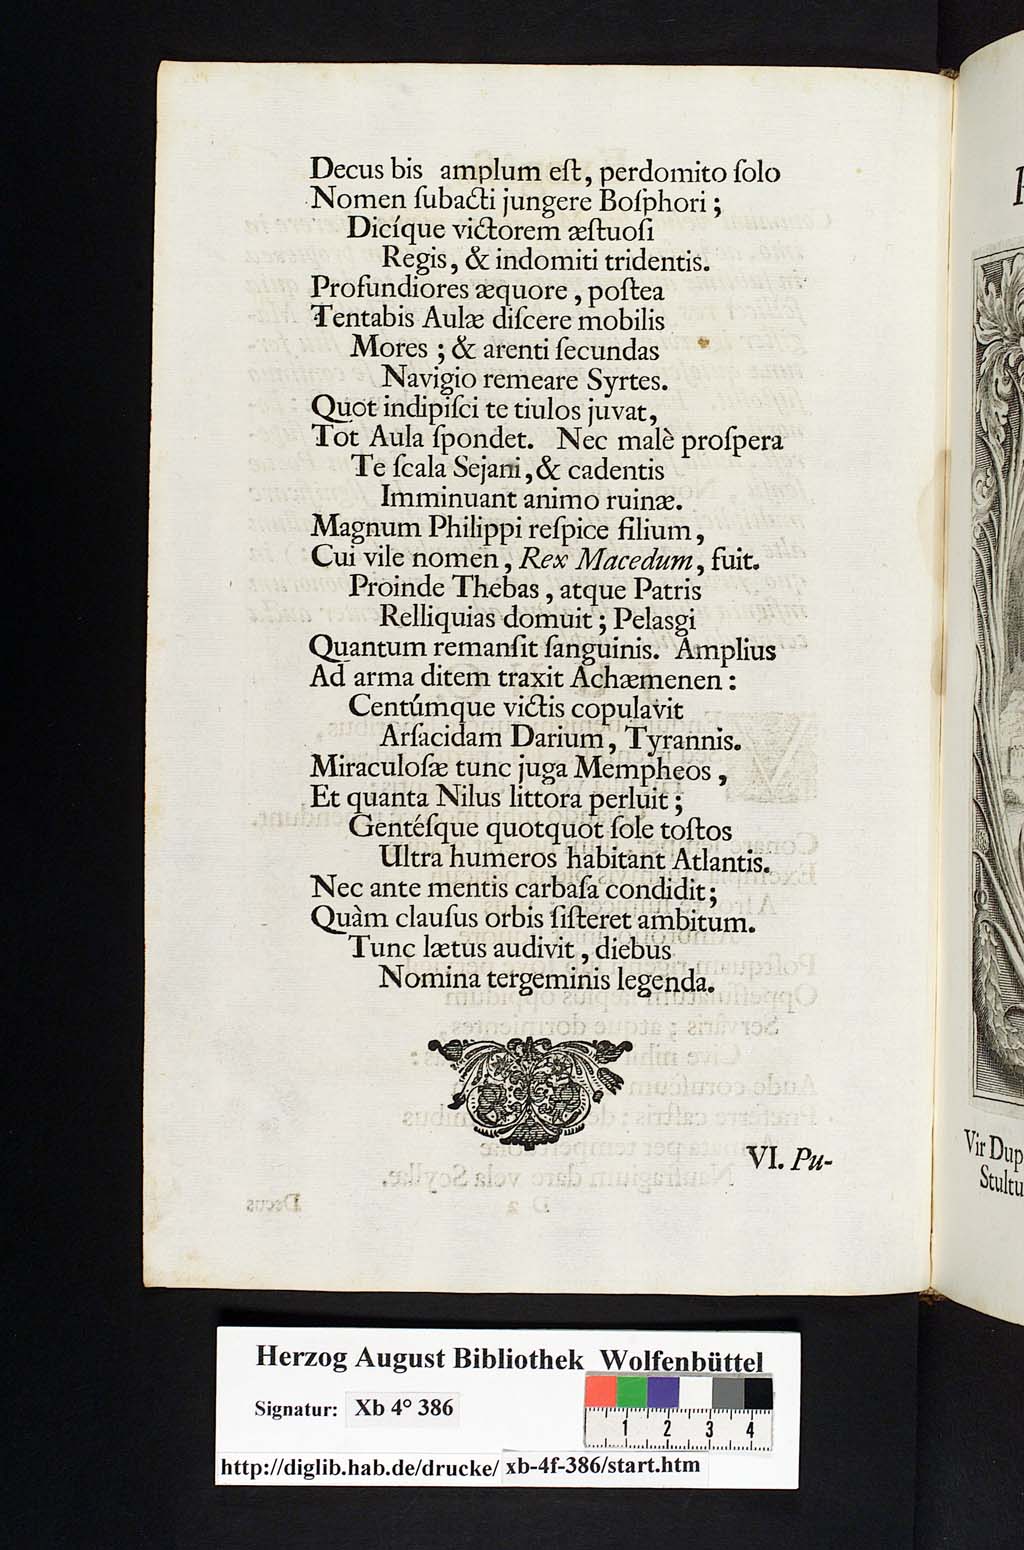 Decus bis amplum eſt, perdomito ſolo
Nomen ſubacti jungere Boſphori;
Dicíque victorem æſtuoſi
Regis, & indomiti tridentis.
Profundiores æquore, poſtea
Tentabis Aulæ diſcere mobilis
Mores; & arenti ſecundas
Navigio remeare Syrtes.
Quot indipiſci te tiulos juvat,
Tot Aula ſpondet. Nec malè proſpera
Te ſcala Sejani, & cadentis
Imminuant animo ruinæ.
Magnum Philippi reſpice filium,
Cui vile nomen, Rex Macedum, fuit.
Proinde Thebas, atque Patris
Relliquias domuit; Pelasgi
Quantum remanſit ſanguinis. Amplius
Ad arma ditem traxit Achæmenen:
Centúmque victis copulavit
Arſacidam Darium, Tyrannis.
Miraculoſæ tunc juga Mempheos,
Et quanta Nilus littora perluit;
Gentéſque quotquot ſole toſtos
Ultra humeros habitant Atlantis.
Nec ante mentis carbaſa condidit;
Quàm clauſus orbis ſiſteret ambitum.
Tunc lætus audivit, diebus
Nomina tergeminis legenda.
VI. Pu-
Vir Dup
Stultu
Herzog August Bibliothek Wolfenbüttel
Signatur: Xb 4° 386
1 2 3 4
http://diglib.hab.de/drucke/ xb-4f-386/start.htm